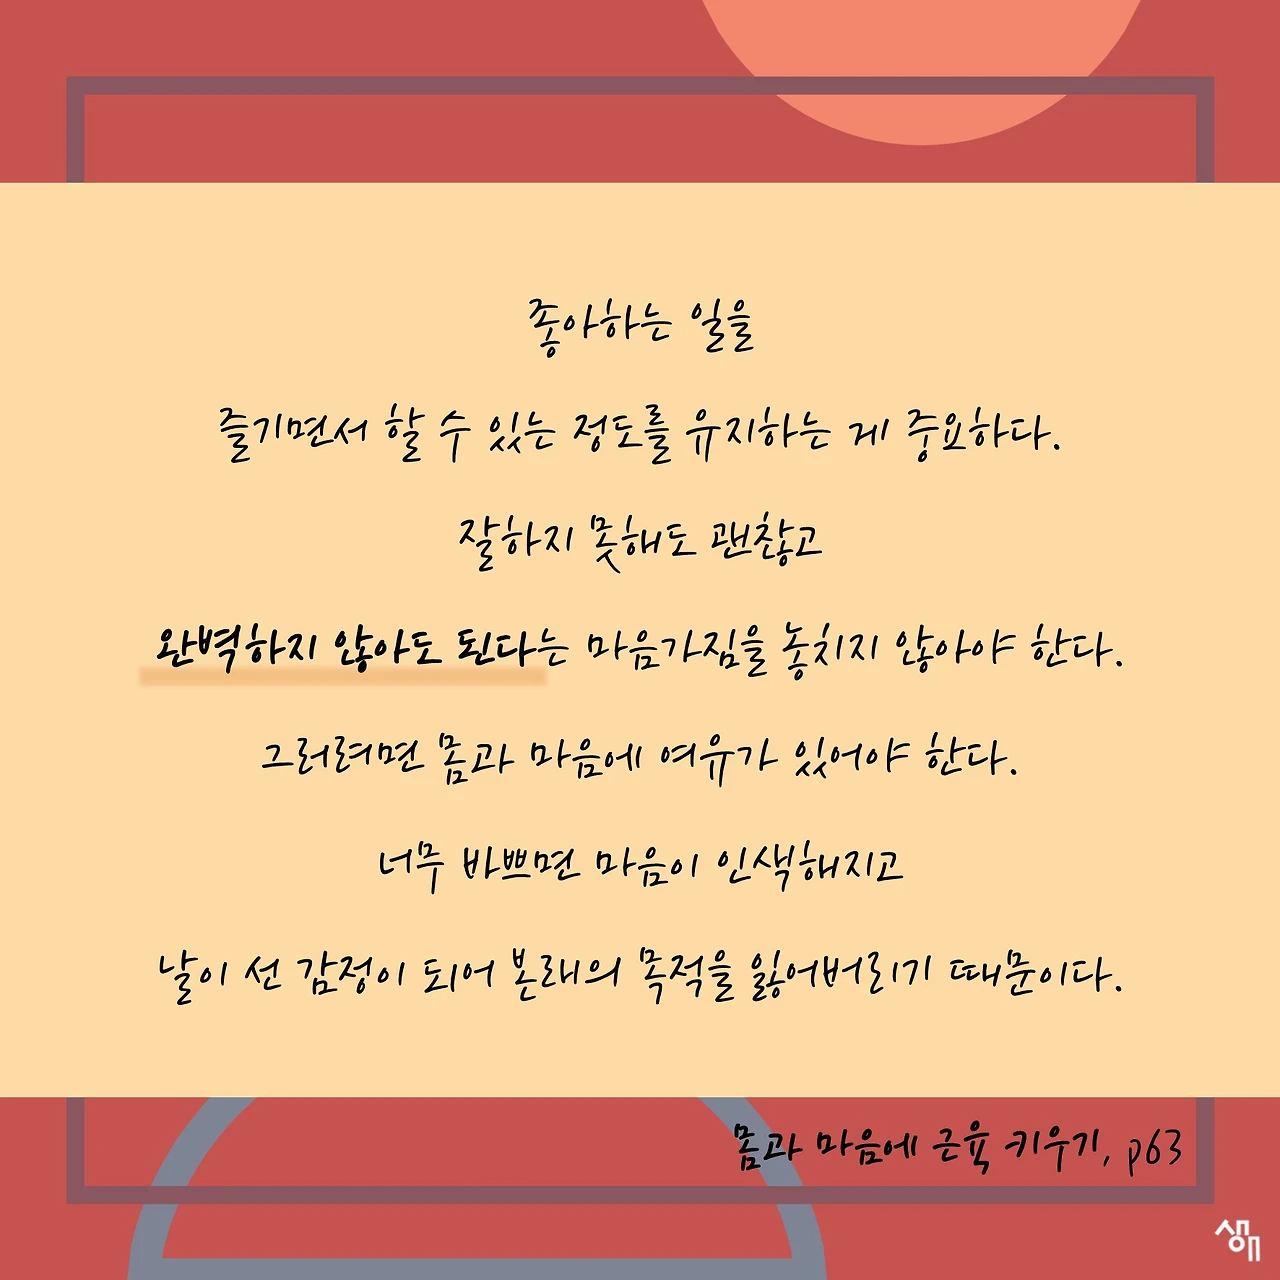 좋아하는 일을
즐기면서 할 수 있는 정도를 유지하는 게 중요하다.
잘하지 못해도 괜찮고
완벽하지 않아도 된다는 마음가짐을 놓치지 않아야 한다.
그러려면 몸과 마음에 여유가 있어야 한다.
너무 바쁘면 마음이 인색해지고
날이 선 감정이 되어 본래의 목적을 잃어버리기 때문이다.
몸과 마음에 근육 키우기, p63